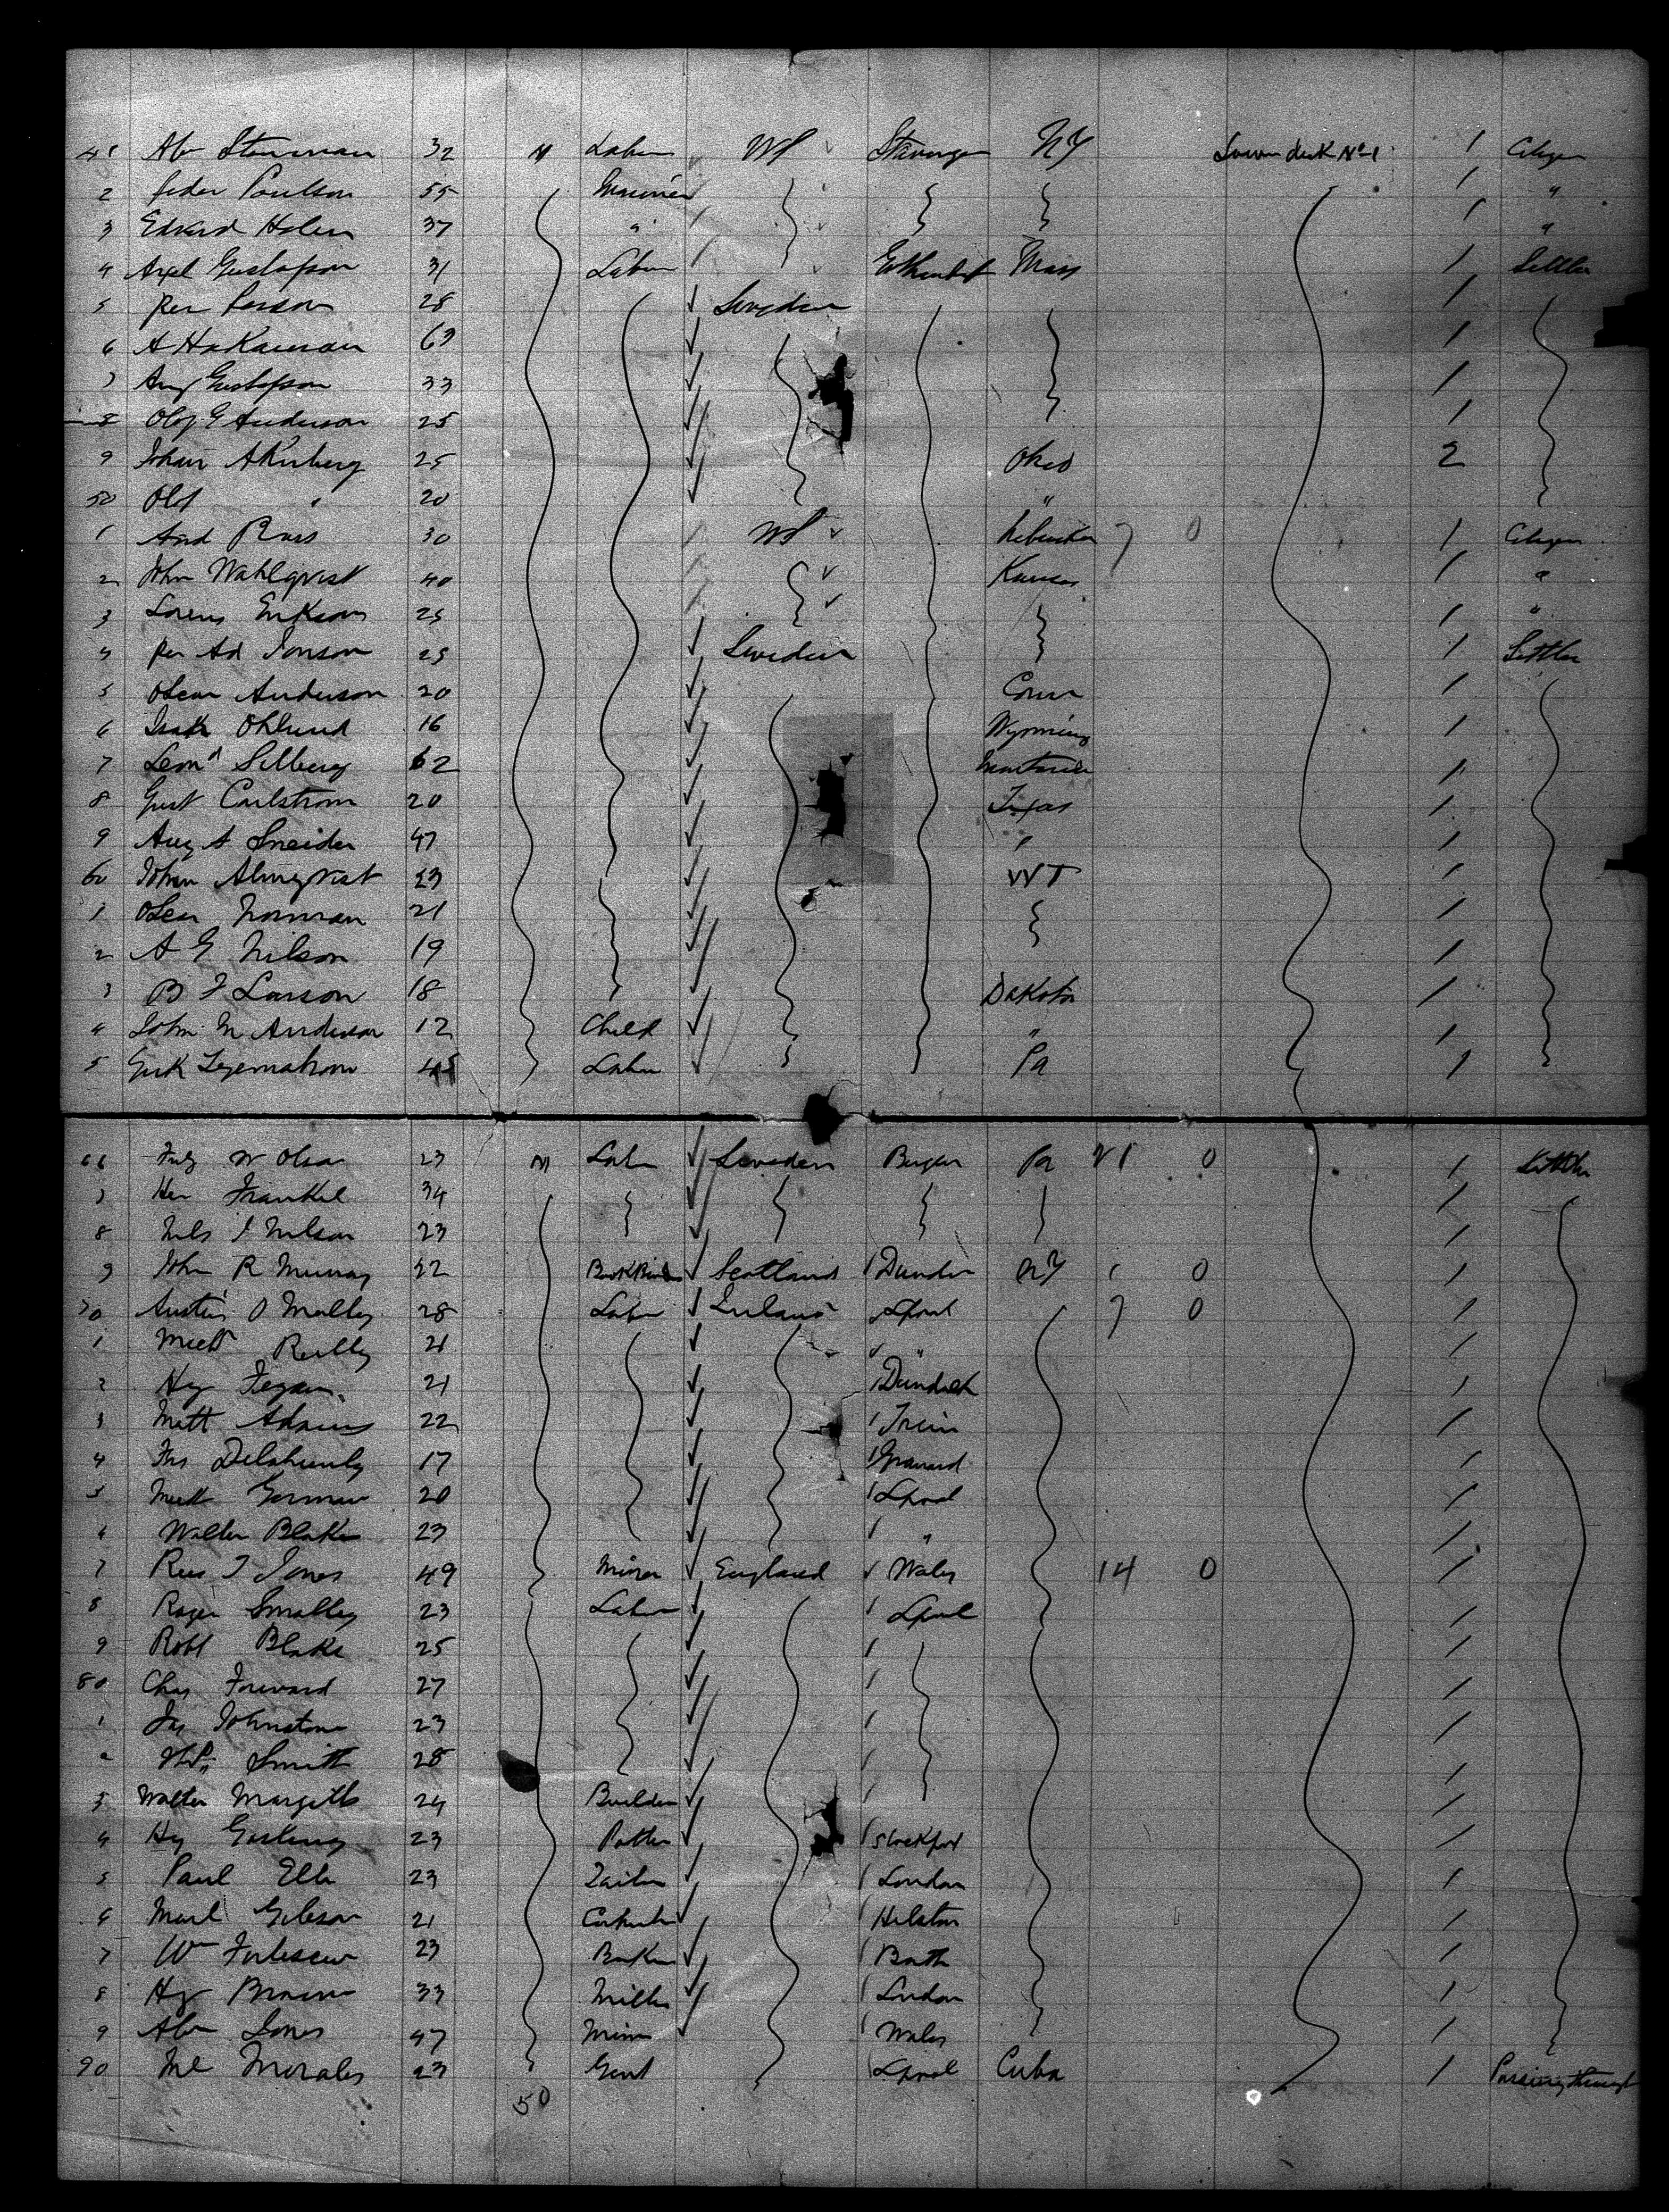 41 Abr 32 M Labor US Stavanger NY Lower deck No 1 1 Citizen
2 Peder Poulson 55 Mariner 1 "
3 Edvard Holen 37 " 1 "
4 Axel Gustafson 31 Labor Mass 1 Settler
5 Per Person 28 Sweden 1
6 A Hakanson 69 1
7 Aug Gustafson 33 1
8 Olof G Anderson 25 1
9 Johan Akerberg 25 Ohio 2
50 Olof " 20 "
1 And 30 US Nebraska 7 0 1 Citizen
2 John Wahlqvist 40 Kansas 1 "
3 Lorens Erikson 25 1 "
4 Per Ad Jonson 25 Sweden 1 Settler
5 Oscar Anderson 20 Conn 1
6 Isak Ohlund 16 Wyoming 1
7 Leond Silberg 62 1
8 Gust Carlstrom 20 Texas 1
9 Aug A Sneider 47 " 1
60 Johan Almqvist 23 WT 1
1 Oscar Norman 21 1
2 A G Nilson 19 1
3 B F Larson 18 Dakota 1
4 John M Anderson 12 Child " 1
5 Erik 45 Labor Pa 1
66 W Olson 23 M Labor Sweden Bergen Pa 21 0 1 Settler
7 Frankel 34 1
8 Nils J Nilson 23 1
9 John R Murray 22 Scotland Dundee NY 1 0 1
70 Austin O Malley 28 Labor Ireland Lpool 7 0 1
1 Reilly 21 " 1
2 Hy Fegan 21 Dundalk 1
3 Matt Adams 22 Trim 1
4 Delahunty 17 Granard 1
5 Gorman 20 Lpool 1
6 Walter Blake 23 " 1
7 Rees T Jones 49 Miner England Wales 14 0 1
8 Roger Smalley 23 Labor Lpool 1
9 Robt Blake 25 1
80 Chas Forward 27 1
1 Jas Johnston 23 1
2 Smith 28 1
3 Walter Margetts 24 Builder 1
4 Hy Gosling 23 Potter Stockport 1
5 Paul 23 Tailor London 1
6 Gibson 21 Helston 1
7 Wm Fortescue 23 Baker Bath 1
8 Hy Brown 33 Miller London 1
9 Abr Jones 47 Miner Wales 1
90 Morales 23 Gent Lpool Cuba 1 Passing through
50